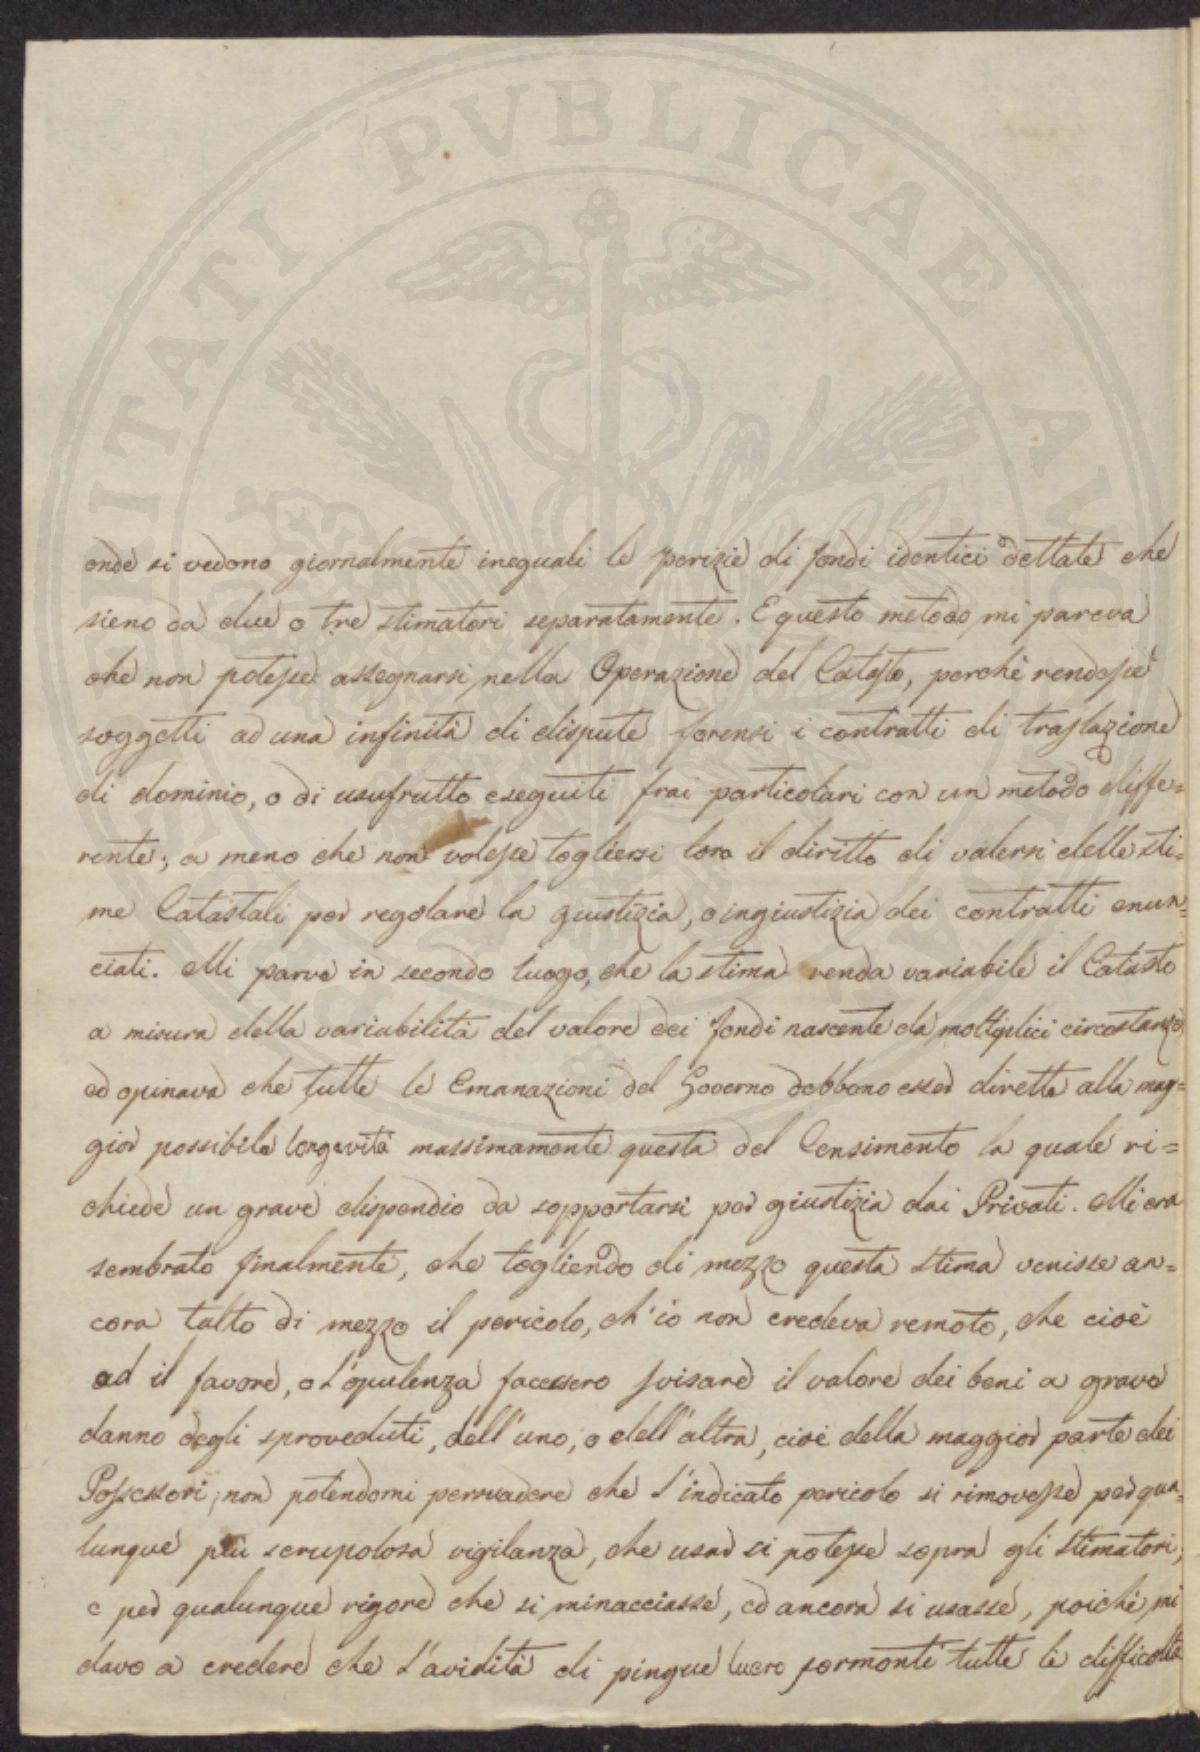 PVBLICAE
onde si vedono giornalmente ineguali le perizie di fondi identici dettate che
sieno da due o tre stimatori separatamente. E questo metodo mi pareva
che non potesse assegnarsi nella Operazione del Catasto, perchè rendesse
soggetti ad una infinità di dispute forensi i contratti di traslazione
di dominio, o di usufrutto eseguiti frai particolari con un metodo diffe=
rente; a meno che non volesse togliersi loro il diritto di valersi delle sti=
me Catastali per regolare la giustizia, o ingiustizia dei contratti enun=
ciati. Mi parve in secondo luogo, che la stima renda variabile il Catasto
a misura della variabilità del valore dei fondi nascente da moltiplici circostanze,
ed opinava che tutte le Emanazioni del Governo debbono esser dirette alla mag=
gior possibile longevità massimamente questa del Censimento la quale ri=
chiede un grave dispendio da sopportarsi per giustizia dai Privati. Mi era
sembrato finalmente, che togliendo di mezzo questa stima venisse an=
cora tolto di mezzo il pericolo, ch'io non credeva remoto, che cioè
od il favore, o l'opulenza facessero svisare il valore dei beni a grave
danno degli sproveduti, dell'uno, o dell'altra, cioè della maggior parte dei
Possessori; non potendomi persuadere che l'indicato pericolo si rimovesse per qua=
lunque più scrupolosa vigilanza, che usar si potesse sopra gli Stimatori,
e per qualunque rigore che si minacciasse, ed ancora si usasse, poichè mi
davo a credere che l'avidità di pingue lucro sormonti tutte le difficoltà